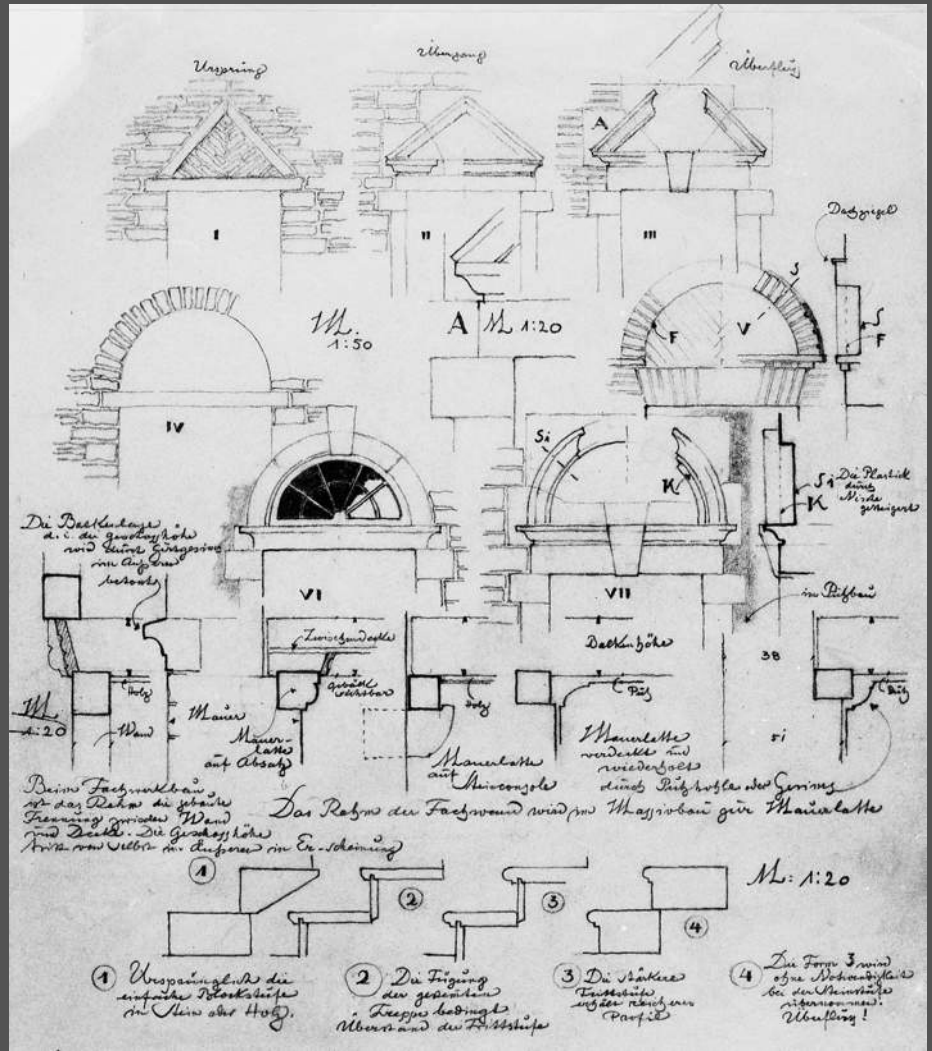 Ursprung
Übergang
Überfluß
A
I
II
III
Dachziegel
M. 1:50
A M 1:20
S
F
V
S
F
IV
Si
K
Si Die Plastick
K durch
Nische
gesteigert
Die Balkenlage
d. i. die Geschoßhöhe
wird durch Gurtgesims
im Äußeren
betont
VI
VII
im Putzbau
Zwischendecke
Balkenhöhe
38
Holz
Gebälk
sichtbar
Holz
Putz
Putz
M.
1:20
Wand
Mauer
Mauer-
latte
auf Absatz
Mauerlatte
auf
Steinconsole
Mauerlatte
verdeckt und
wiederholt
durch Putzhohle oder Gesims
51
Beim Fachwerkbau
ist das Rahm die gebaute
Trennung zwischen Wand
und Decke. Die Geschoßhöhe
tritt von selbst im Äußeren in Er-scheinung
Das Rahm der Fachwand wird im Massivbau zur Mauerlatte
1
2
3
4
M: 1:20
1 Ursprünglich die
einfache Blockstufe
in Stein oder Holz.
2 Die Fügung
der gestemmten
Treppe bedingt
Überstand der Trittstufe
3 Die stärkere
Trittstufe
erhält reicheres
Profil
4 Die Form 3 wird
ohne Notwendigkeit
bei der Steinstufe
übernommen.
Überfluß!